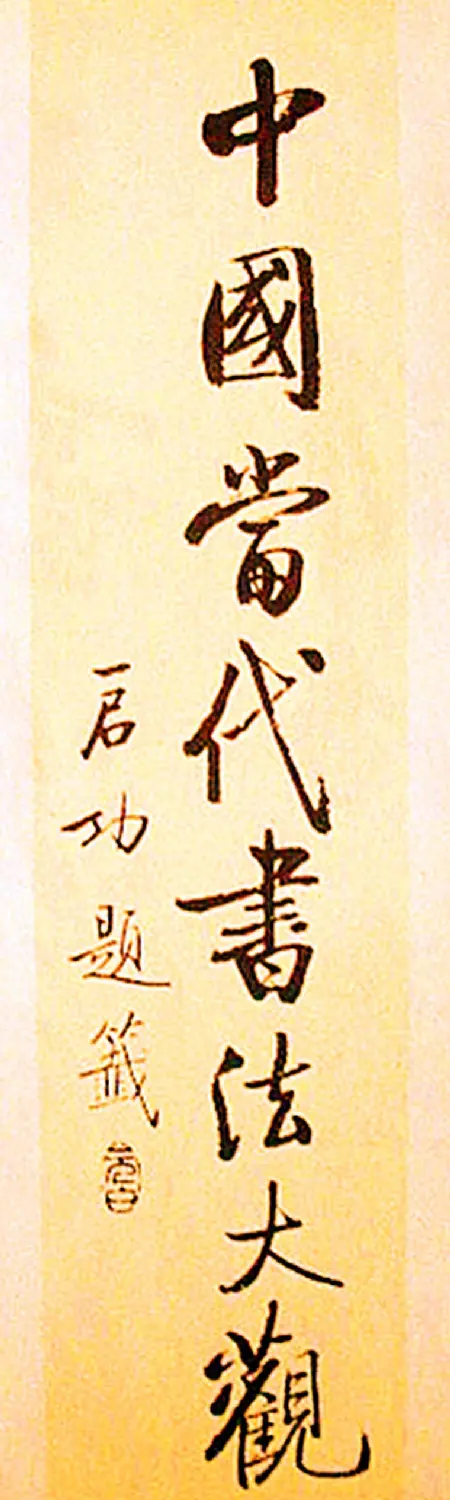 中國當代書法大觀
启功題籤